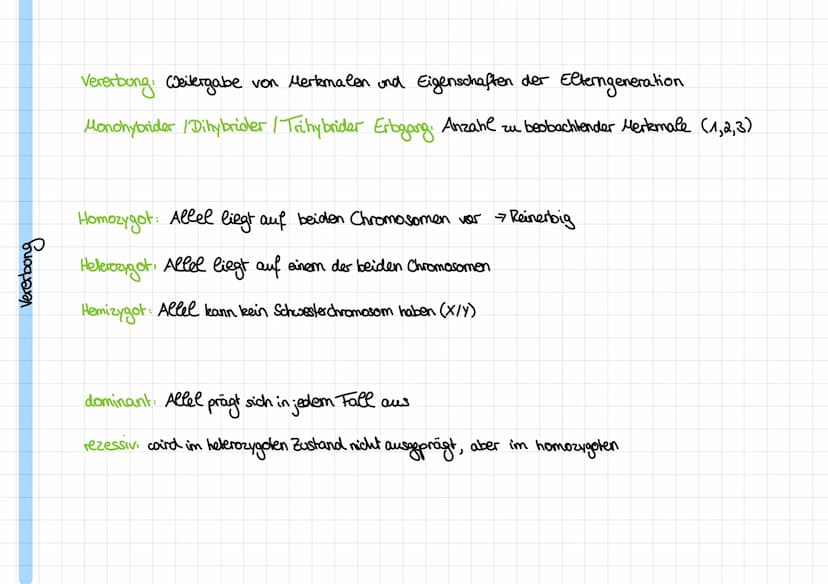 Vererbung: Weitergabe von Merkmalen und Eigenschaften der Elterngeneration
Monohybrider / Dihybrider / Trihybrider Erbgang: Anzahl zu beobachtender Merkmale (1,2,3)
Homozygot: Allel liegt auf beiden Chromosomen vor → Reinerbig
Heterozygot: Allel liegt auf einem der beiden Chromosomen
Hemizygot: Allel kann kein Schwesterchromosom haben (X/Y)
dominant: Allel prägt sich in jedem Fall aus
rezessiv: wird im heterozygoten Zustand nicht ausgeprägt, aber im homozygoten
Vererbung